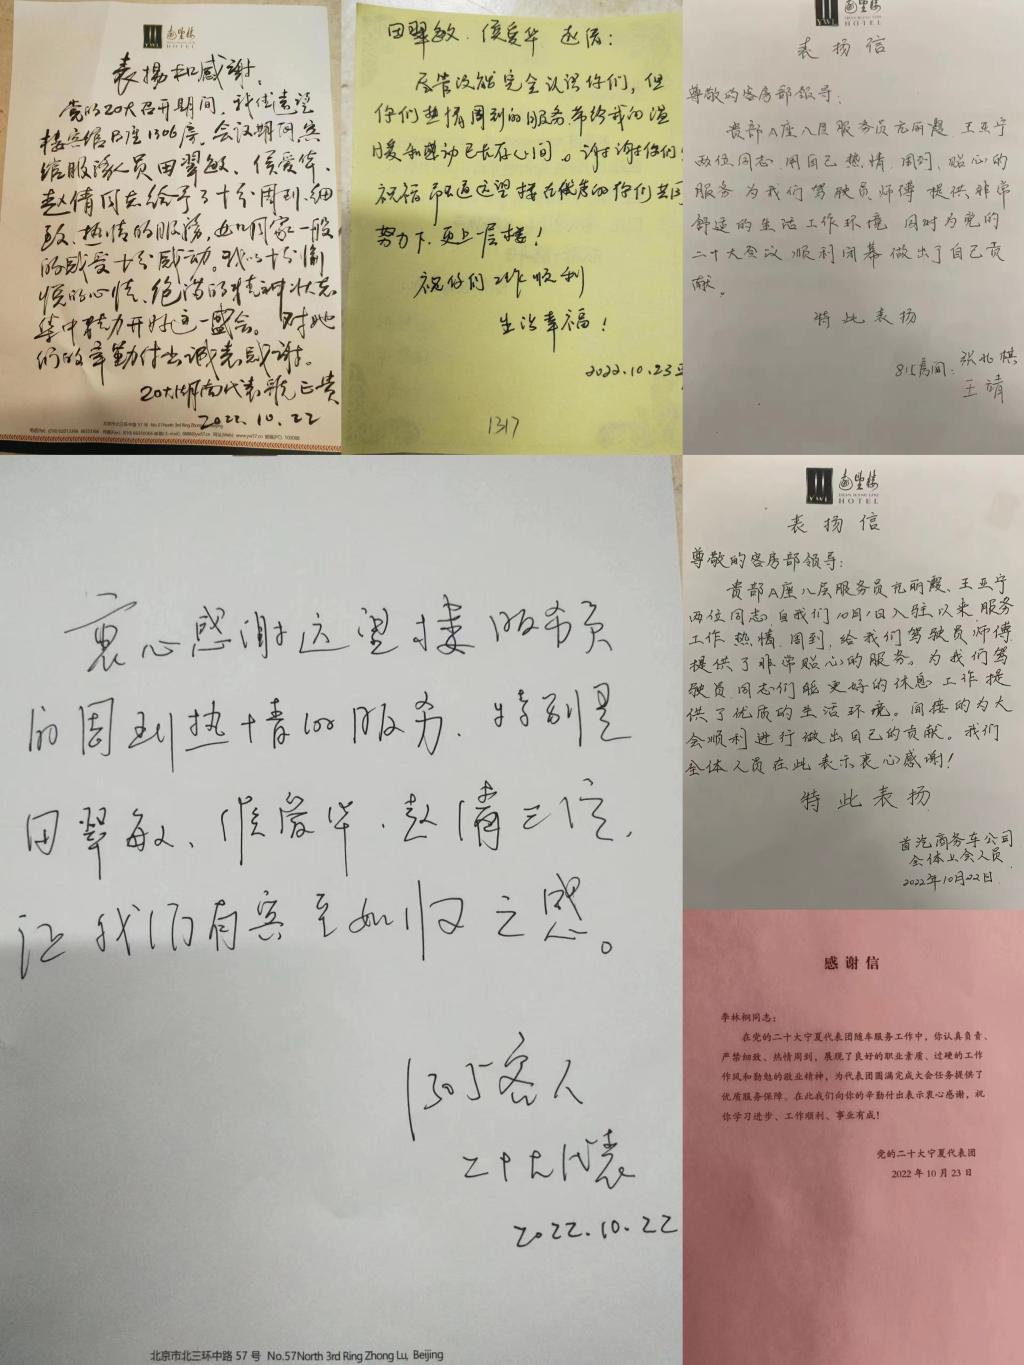 远望楼
YWL
HOTEL
表揚和感谢
党的20大召开期间，我住远望
楼宾馆B座1306房，会议期间宾
馆服务人员田翠敏、侯爱华、
赵倩同志给予了十分周到、细
致、热情的服务，如回家一般
的感受十分感动。我以十分愉
悦的心情、饱满的精神状态
集中精力开好这一盛会。对她
们的辛勤付出诚表感谢。
20大湖南代表
2022.10.22
北京市北三环中路 57 号 No.57North 3rd Ring Zhong
田翠敏、侯爱华 赵倩：
尽管没能完全认识你们，但
你们热情周到的服务带给我的温
暖和感动已长存心间。谢谢你们！
祝福
努力下，更上一层楼！
祝你们工作顺利
生活幸福！
2022.10.23
1317
YWL
HOTEL
表扬信
尊敬的客房部领导：
贵部A座八层服务员尤丽霞、王亚宁
两位同志用自己热情、周到、贴心的
服务为我们驾驶员师傅提供非常
舒适的生活工作环境 同时为党的
二十大会议顺利闭幕做出了自己贡
献。
特此表扬
815房间：张兆棋
王靖
衷心感谢远望楼服务员
的周到热情的服务，特别是
田翠敏、侯爱华、赵倩三位，
让我们有宾至如归之感。
1305客人
二十大代表
2022.10.22
北京市北三环中路 57 号 No.57North 3rd Ring Zhong Lu, Beijing
远望楼
YWL
YUAN WANG LOU
HOTEL
表扬信
尊敬的客房部领导：
贵部A座八层服务员尤丽霞、王亚宁
两位同志，自我们10月1日入驻以来，服务
工作热情、周到，给我们驾驶员师傅
提供了非常贴心的服务。为我们驾
驶员同志们能更好的休息工作提
供了优质的生活环境。间接的为大
会顺利进行做出自己的贡献。我们
全体人员在此表示衷心感谢！
特此表扬
首汽商务车公司
全体上会人员
2022年10月22日
感谢信
李林桐同志：
在党的二十大宁夏代表团随车服务工作中，你认真负责、
严禁细致、热情周到，展现了良好的职业素质、过硬的工作
作风和勤勉的敬业精神，为代表团圆满完成大会任务提供了
优质服务保障。在此我们向你的辛勤付出表示衷心感谢，祝
你学习进步、工作顺利、事业有成！
党的二十大宁夏代表团
2022 年 10 月 23 日